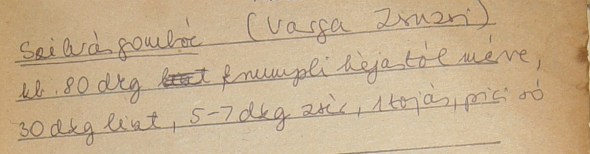 Szilvás gombóc (Varga Zsuzsi)
kb. 80 dkg krumpli héjastól mérve,
30 dkg liszt, 5-7 dkg zsír, 1 tojás, pici só